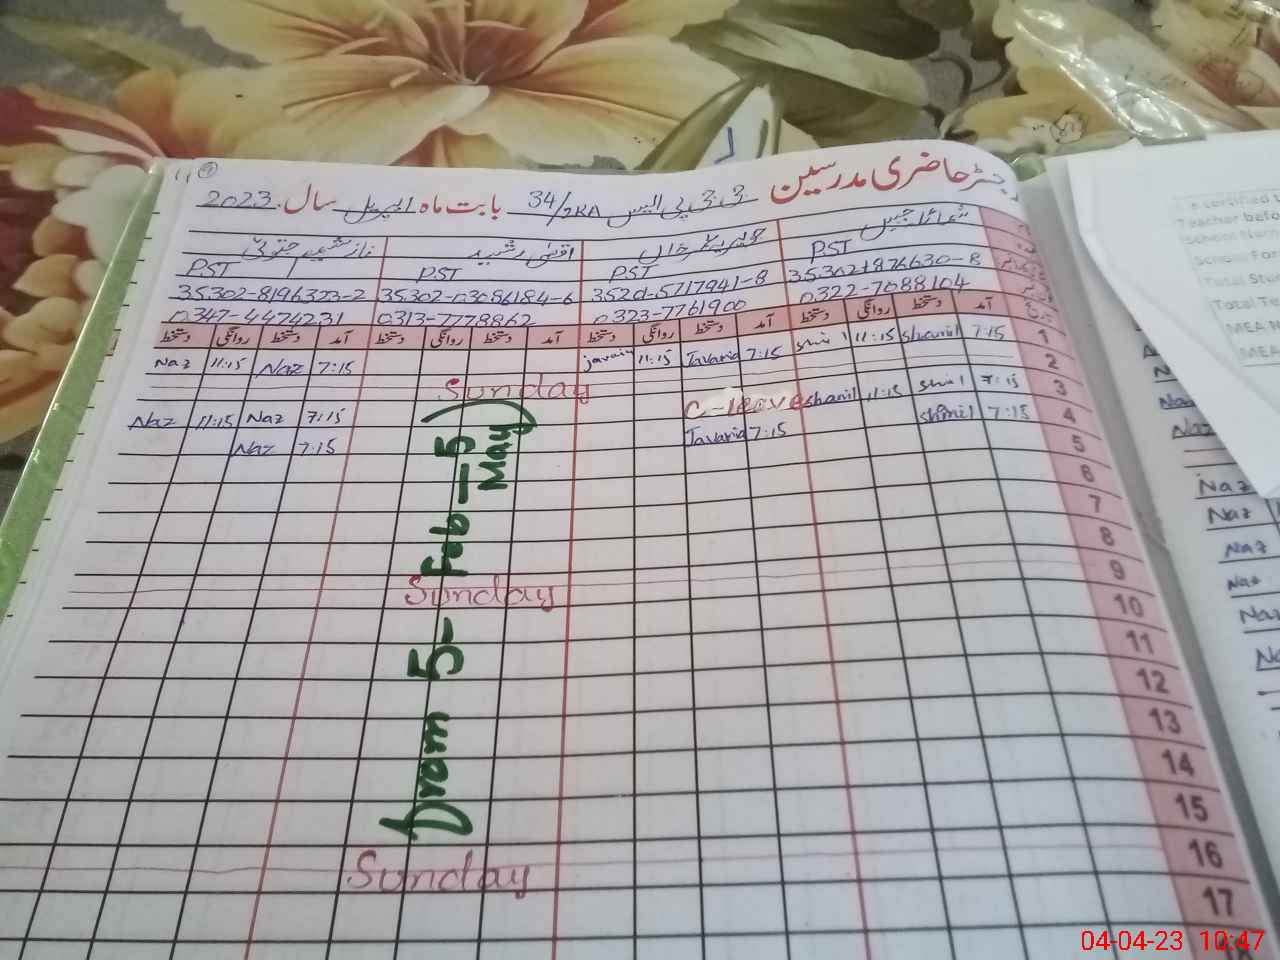 رجسٹر حاضری مدرسین جی جی پی ایس 34/2RA بابت ماہ اپریل سال 2023
شمائلہ جبیں جویریہ خان اقصٰی رشید نازشین جتوئی
PST PST PST PST
35302-1876630-8 3520-5717941-8 35302-03086184-6 35302-8196323-2
0322-7088104 0323-7761900 0313-7778862 0347-4474231
آمد دستخط روانگی دستخط آمد دستخط روانگی دستخط آمد دستخط روانگی دستخط آمد دستخط روانگی دستخط
1 7:15 shamil 11:15 7:15 Javaria 11:15 7:15 Naz 11:15 Naz
2 Sunday
3 7:15 11:15 shamil C-leave 7:15 Naz 11:15 Naz
4 7:15 shamil 7:15 Javaria 7:15 Naz
5
6
7
8
9 Sunday
10
11
12
13
14
15
16 Sunday
17
18
From 5-Feb-5 May)
is certified
Teacher befo
School Nam
School For
Total Stud
Total Te
MEA N
MEA
Naz
Naz
Naz
Naz
Naz
04-04-23 10:47